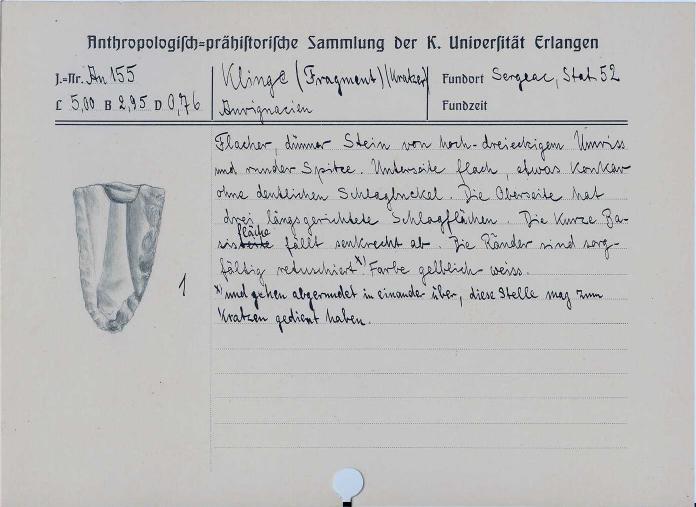 Anthropologisch=prähistorische Sammlung der K. Universität Erlangen
J.=Nr. An 155
L 5,00 B 2,95 D 0,76
Klinge (Fragment) (Kratzer)
Aurignacien
Fundort Sergeac, Stat. 52
Fundzeit
Flacher, dünner Stein von hoch-dreieckigem Umriss
und runder Spitze. Unterseite flach, etwas konkav
ohne deutlichen Schlagbuckel. Die Oberseite hat
drei längsgerichtete Schlagflächen. Die kurze Ba-
sisfläche fällt senkrecht ab. Die Ränder sind sorg-
fältig retuschiert x). Farbe gelblich weiss.
x) und gehen abgerundet in einander über, diese Stelle mag zum
Kratzen gedient haben.
1